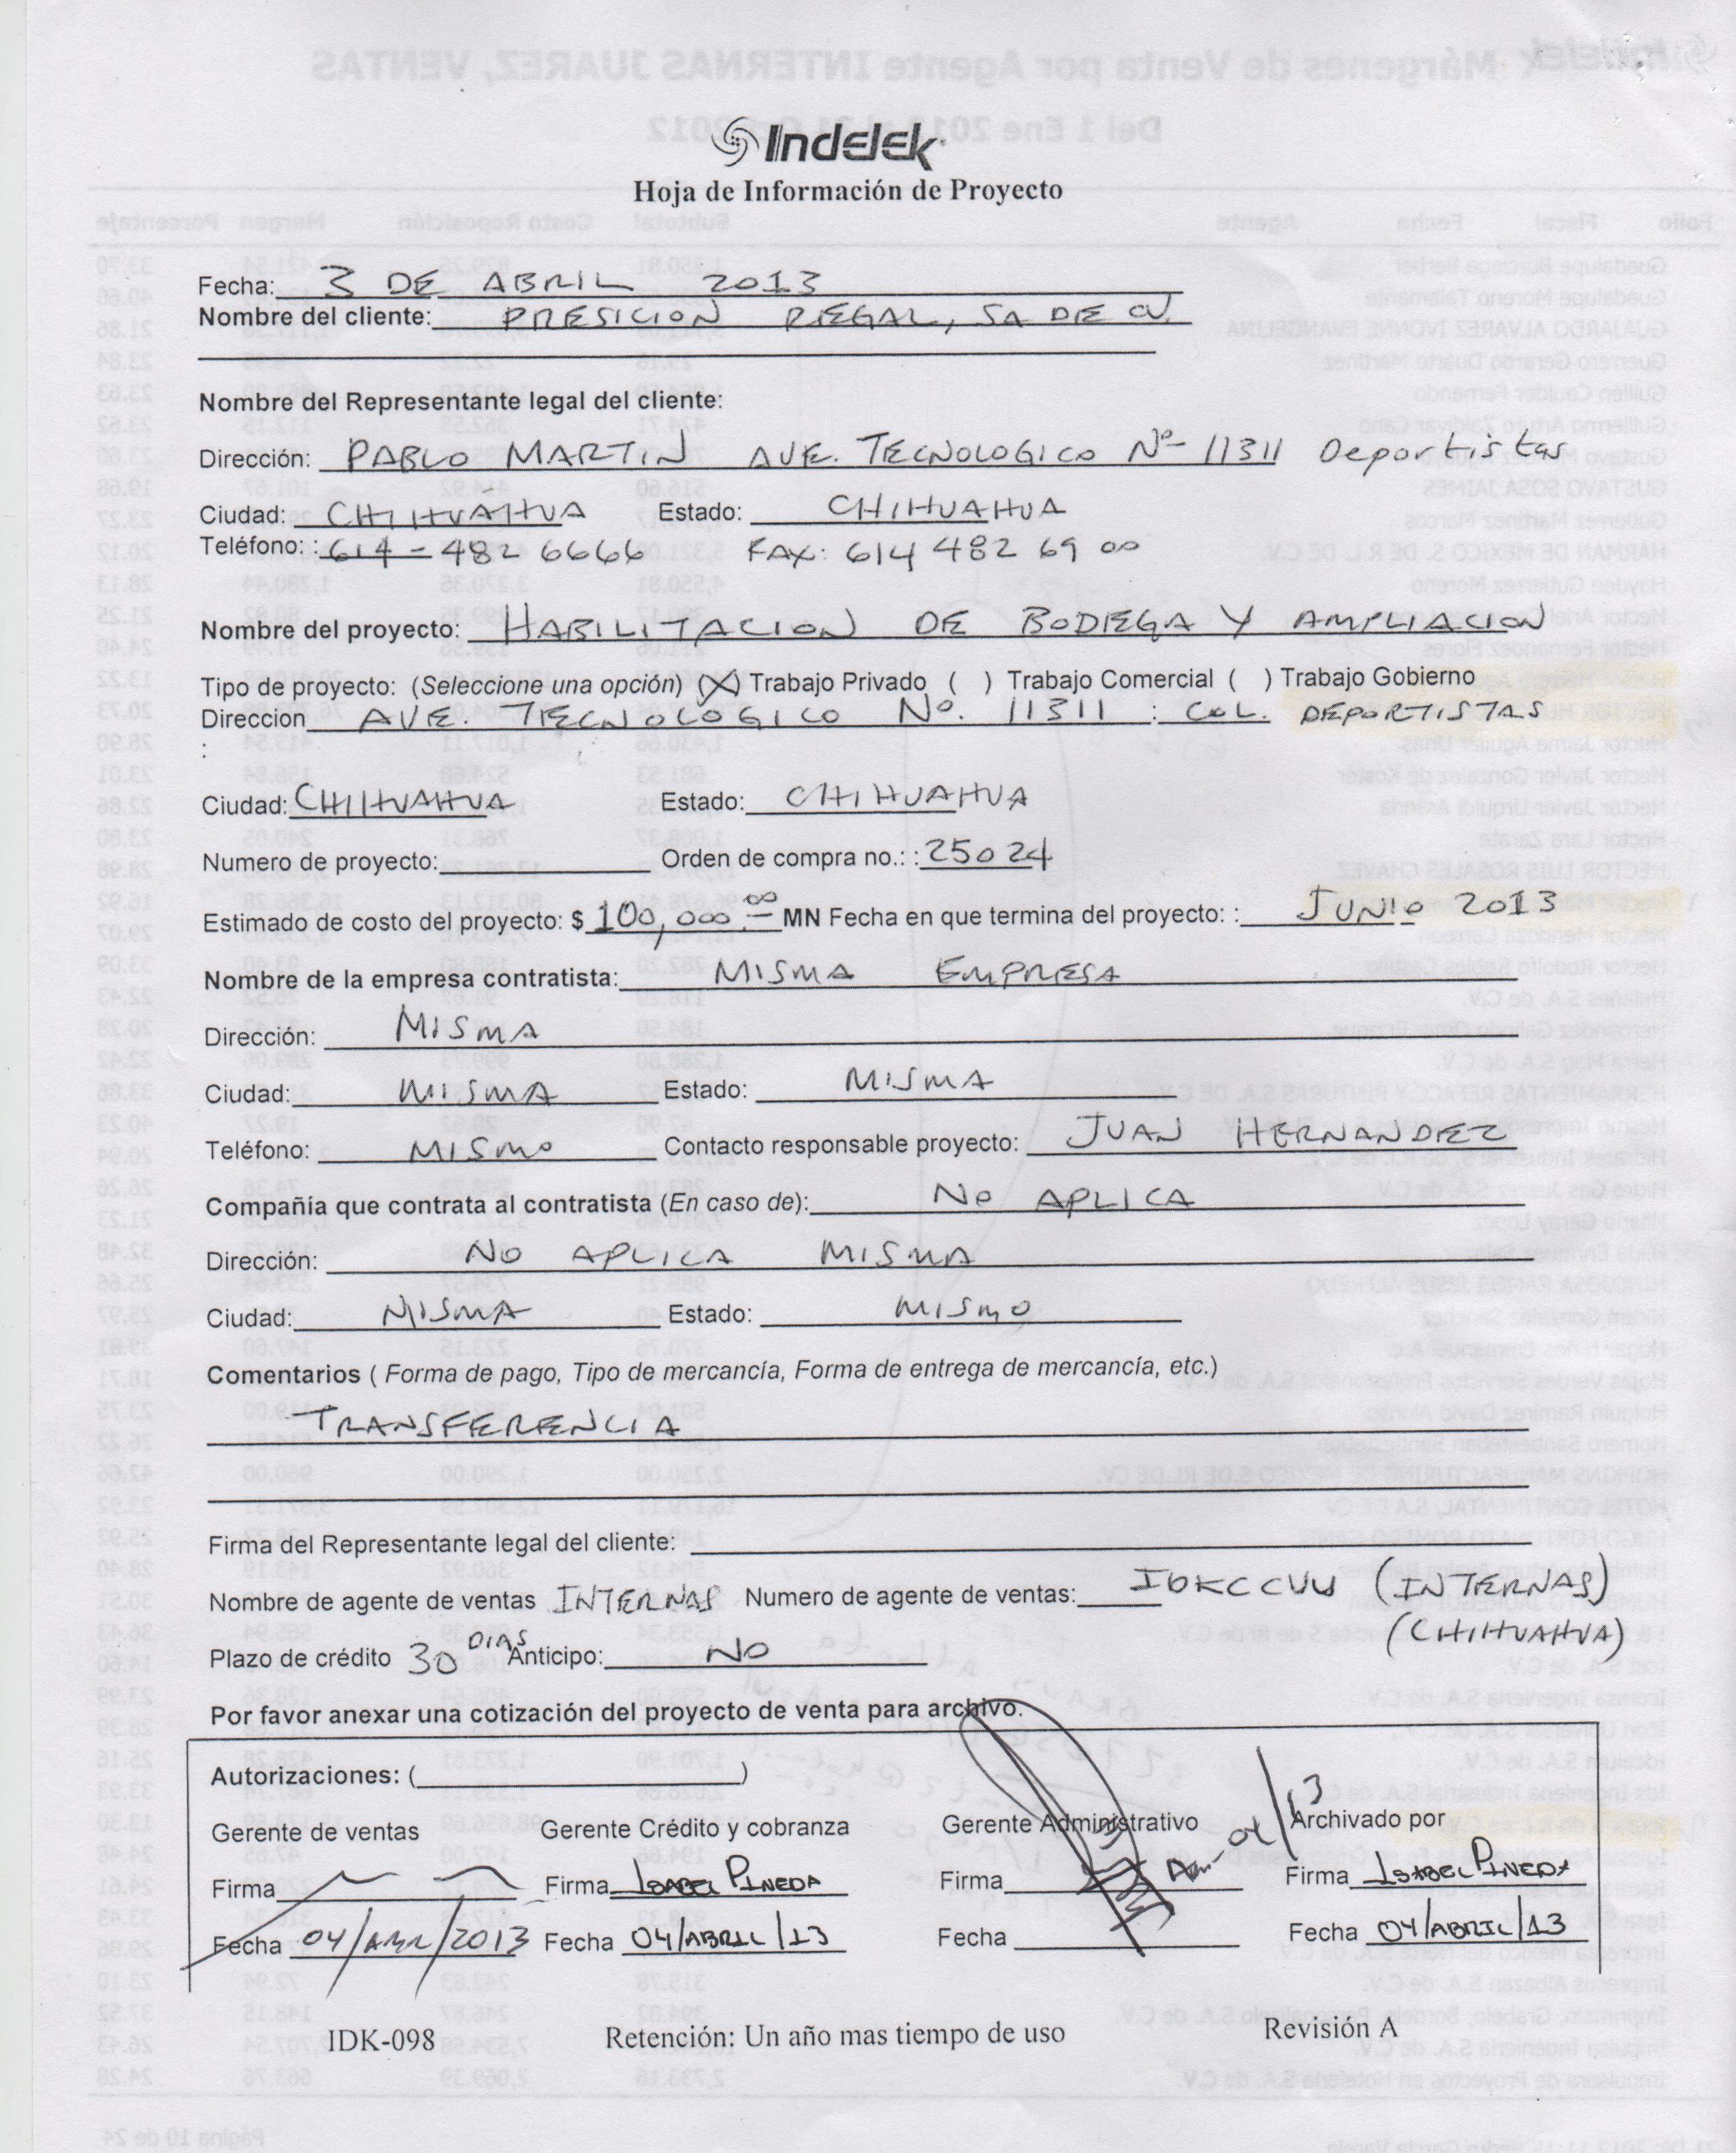 Indelek
Hoja de Información de Proyecto
Fecha: 3 DE ABRIL 2013
Nombre del cliente: PRESICION REGAL, SA DE CV.
Nombre del Representante legal del cliente:
Dirección: PABLO MARTIN AVE. TECNOLOGICO Nº- 11311 Deportistas
Ciudad: CHIHUAHUA Estado: CHIHUAHUA
Teléfono: : 614 - 482 6666 FAX: 614 482 69 00
Nombre del proyecto: HABILITACION DE BODEGA Y AMPLIACION
Tipo de proyecto: (Seleccione una opción) (X) Trabajo Privado ( ) Trabajo Comercial ( ) Trabajo Gobierno
Direccion AVE. TECNOLOGICO No. 11311 : COL. DEPORTISTAS
:
Ciudad: CHIHUAHUA Estado: CHIHUAHUA
Numero de proyecto: Orden de compra no.: : 25024
Estimado de costo del proyecto: $ 100,000.00 MN Fecha en que termina del proyecto: : JUNIO 2013
Nombre de la empresa contratista: MISMA EMPRESA
Dirección: MISMA
Ciudad: MISMA Estado: MISMA
Teléfono: MISMO Contacto responsable proyecto: JUAN HERNANDEZ
Compañía que contrata al contratista (En caso de): No APLICA
Dirección: NO APLICA MISMA
Ciudad: MISMA Estado: MISMO
Comentarios ( Forma de pago, Tipo de mercancía, Forma de entrega de mercancía, etc.)
TRANSFERENCIA
Firma del Representante legal del cliente:
Nombre de agente de ventas INTERNAS Numero de agente de ventas: IDKCCUU (INTERNAS)
(CHIHUAHUA)
Plazo de crédito 30 DIAS Anticipo: NO
Por favor anexar una cotización del proyecto de venta para archivo.
Autorizaciones: ( )
Gerente de ventas Gerente Crédito y cobranza Gerente Administrativo Archivado por
Firma Firma ISABEL PINEDA Firma Firma ISABEL PINEDA
Fecha 04/ABR/2013 Fecha 04/ABRIL/13 Fecha Fecha 04/ABRIL/13
IDK-098 Retención: Un año mas tiempo de uso Revisión A